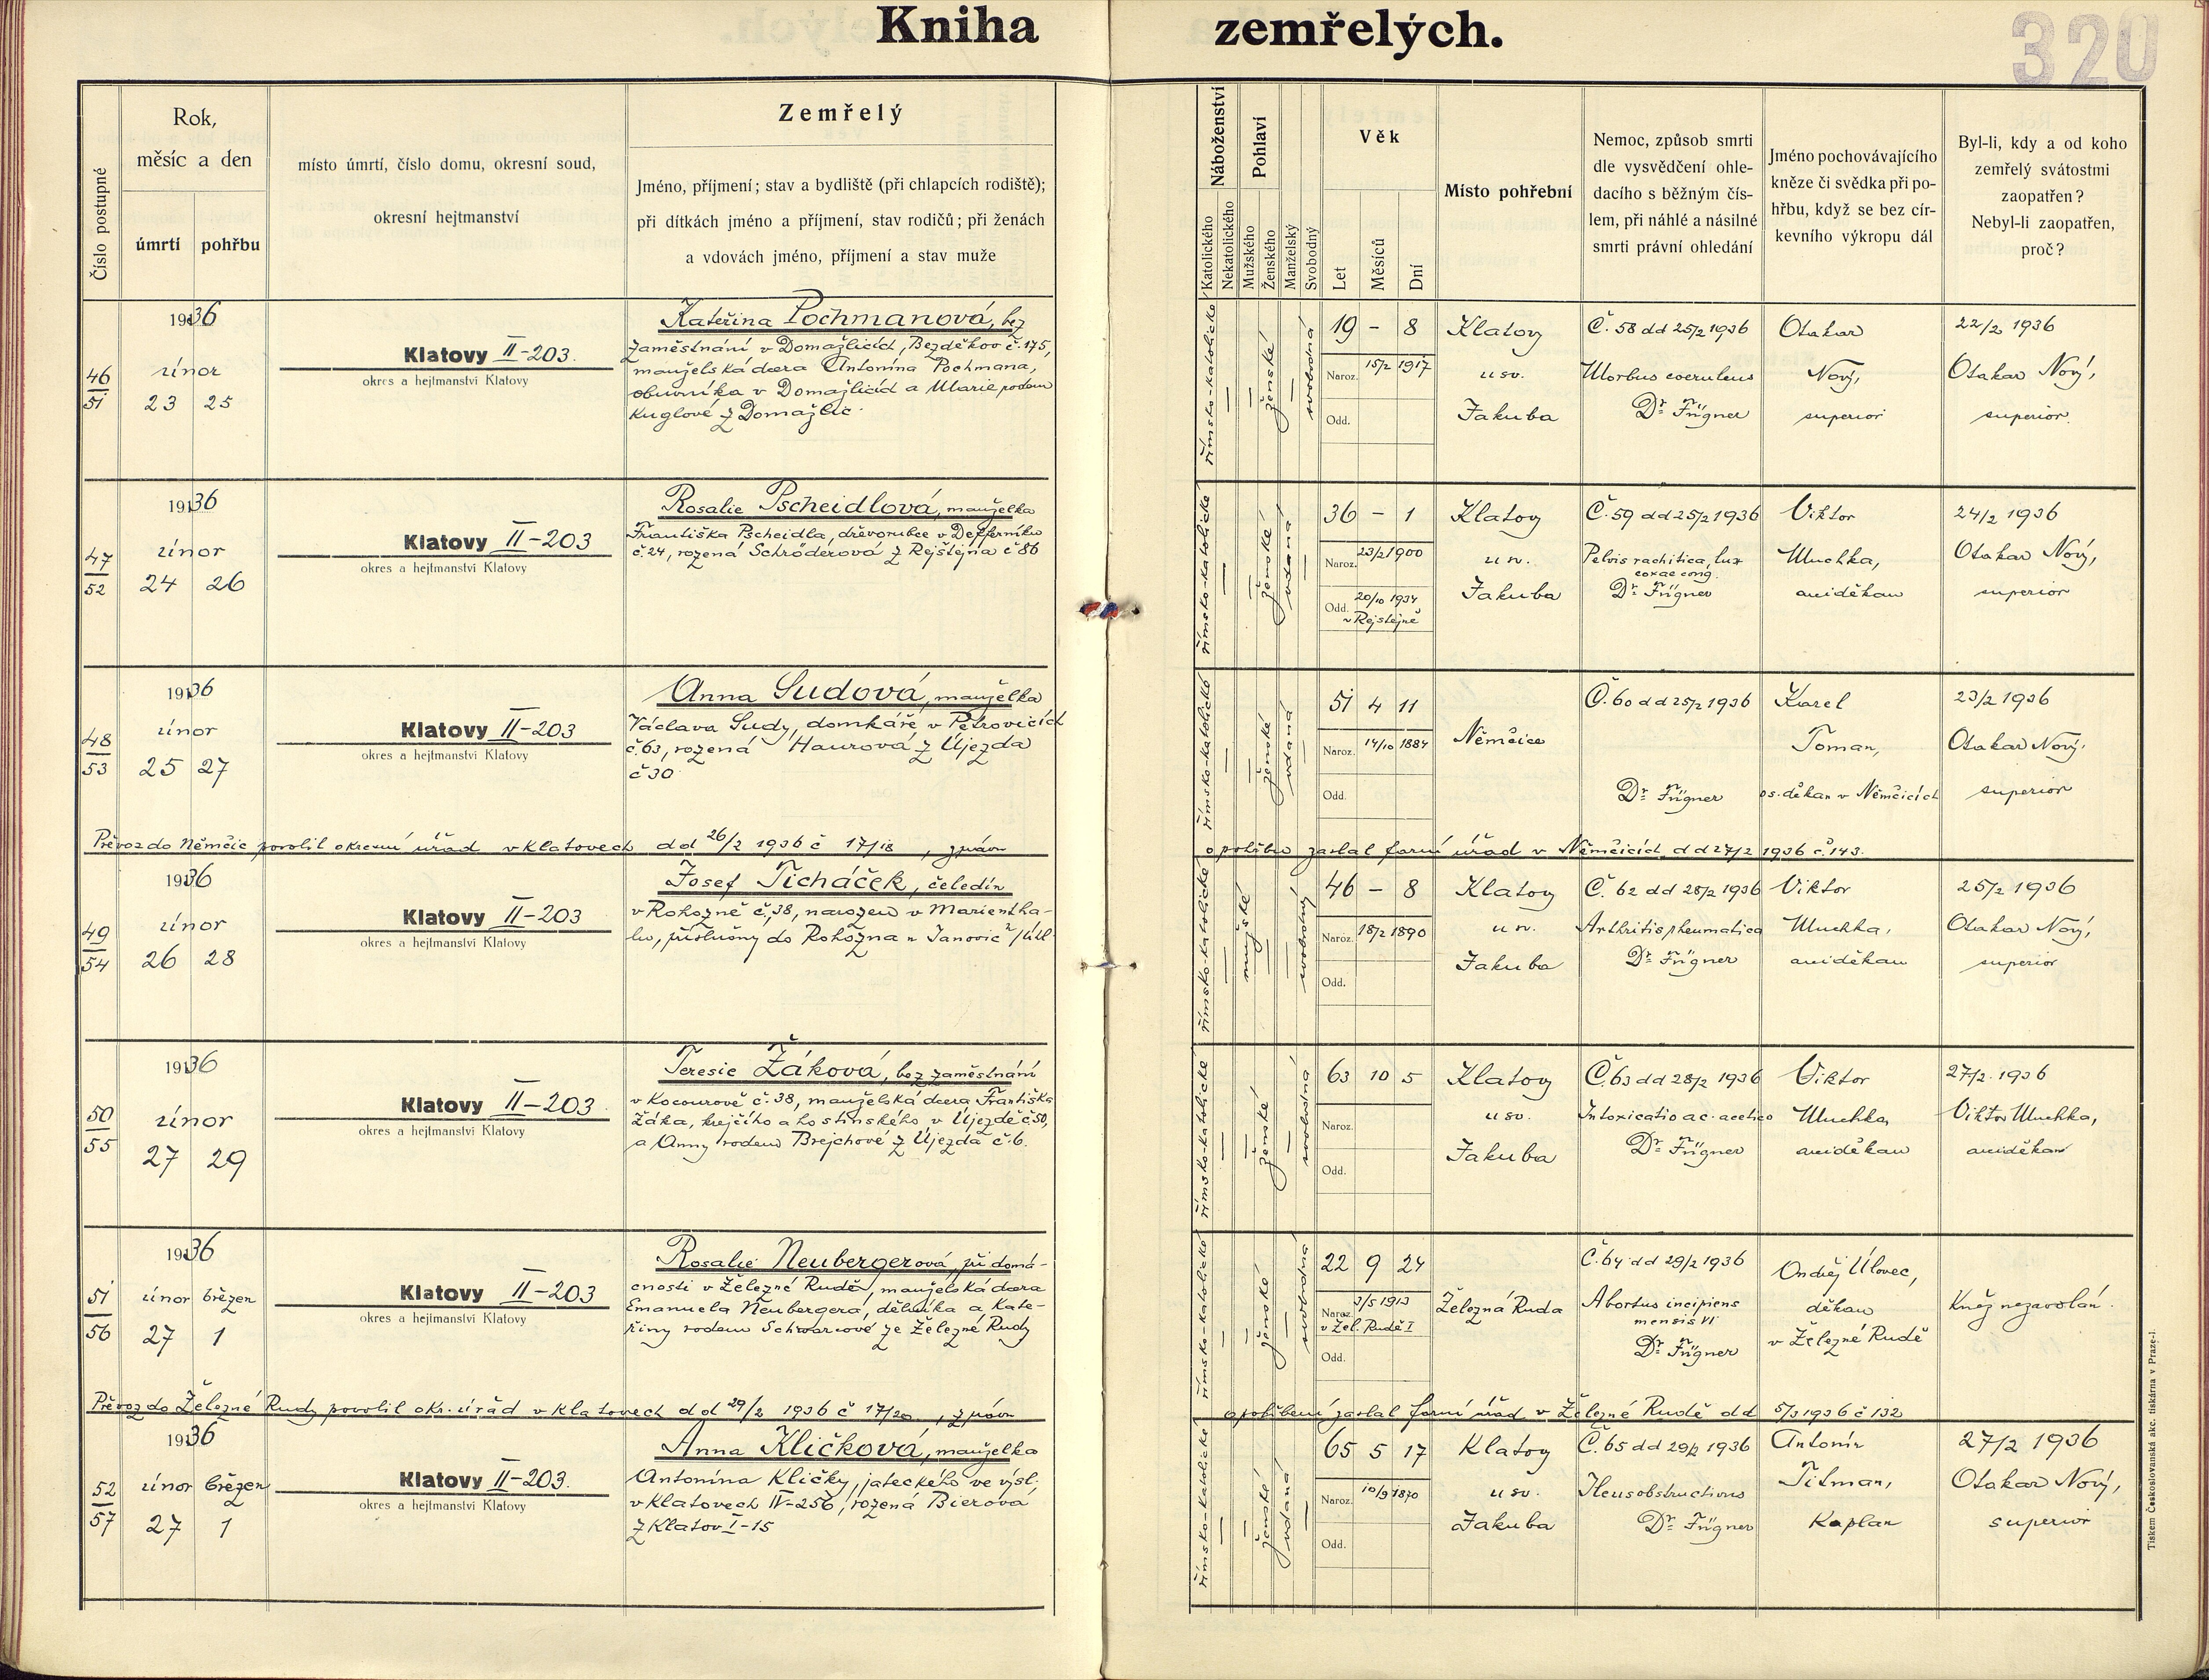 Kniha zemřelých.
320
Číslo postupné
Rok,
měsíc a den
úmrtí pohřbu
místo úmrtí, číslo domu, okresní soud,
okresní hejtmanství
Zemřelý
Jméno, příjmení; stav a bydliště (při chlapcích rodiště);
při dítkách jméno a příjmení, stav rodičů; při ženách
a vdovách jméno, příjmení a stav muže
Náboženství
Katolického
Nekatolického
Pohlaví
Mužského
Ženského
Manželský
Svobodný
Věk
Let
Měsíců
Dní
Místo pohřební
Nemoc, způsob smrti
dle vysvědčení ohle-
dacího s běžným čís-
lem, při náhlé a násilné
smrti právní ohledání
Jméno pochovávajícího
kněze či svědka při po-
hřbu, když se bez cír-
kevního výkropu dál
Byl-li, kdy a od koho
zemřelý svátostmi
zaopatřen?
Nebyl-li zaopatřen,
proč?
46
51
1936
únor
23 25
Klatovy II-203.
okres a hejtmanství Klatovy
Kateřina Pochmanová, bez
zaměstnání v Domažlicích, Bezděkov č. 175,
manželská dcera Antonína Pochmana,
obuvníka v Domažlicích a Marie rodem
Kuglové z Domažlic.
římsko-katolické
ženské
svobodná
19 - 8
Naroz. 15/2 1917
Odd.
Klatovy
u sv.
Jakuba
Č. 58 dd 25/2 1936
Morbus coeruleus
Dr. Fügner
Otakar
Nový,
superior
22/2 1936
Otakar Nový,
superior.
47
52
1936
únor
24 26
Klatovy II-203
okres a hejtmanství Klatovy
Rosalie Pscheidlová, manželka
Františka Pscheidla, dřevorubce v Defferníku
č 24, rozená Schröderová z Rejštejna č 86
římsko-katolické
ženské
vdaná
36 - 1
Naroz. 23/2 1900
Odd. 20/10 1934
v Rejštejně
Klatovy
u sv.
Jakuba
Č. 59 dd 25/2 1936
Pelvis rachitica, lux
coxae cong.
Dr. Fügner
Viktor
Muchka,
arciděkan
24/2 1936
Otakar Nový,
superior
48
53
1936
únor
25 27
Klatovy II-203
okres a hejtmanství Klatovy
Anna Sudová, manželka
Václava Sudy, domkáře v Petrovicích
č 63, rozená Haurová z Újezda
č 30
římsko-katolické
ženské
vdaná
51 4 11
Naroz. 14/10 1884
Odd.
Němčice
Č. 60 dd 25/2 1936
Dr. Fügner
Karel
Toman,
os. děkan v Němčicích
23/2 1936
Otakar Nový,
superior
Převoz do Němčic povolil okresní úřad v Klatovech dd 26/2 1936 č 17/18, zprávu
o pohřbu zaslal farní úřad v Němčicích dd 27/2 1936 č. 143.
49
54
1936
únor
26 28
Klatovy II-203
okres a hejtmanství Klatovy
Josef Ticháček, čeledín
v Rohozně č. 38, narozen v Marientha-
lu, příslušný do Rohozna u Janovic n/Úhl.
římsko-katolické
mužské
svobodný
46 - 8
Naroz. 18/2 1890
Odd.
Klatovy
u sv.
Jakuba
Č. 62 dd 28/2 1936
Arthritis rheumatica
Dr. Fügner
Viktor
Muchka,
arciděkan
25/2 1936
Otakar Nový,
superior
50
55
1936
únor
27 29
Klatovy II-203.
okres a hejtmanství Klatovy
Teresie Žáková, bez zaměstnání
v Kocourově č. 38, manželská dcera Františka
Žáka, krejčího a hostinského v Újezdě č 50,
a Anny rodem Brejchové z Újezda č. 6.
římsko-katolické
ženské
svobodná
63 10 5
Naroz.
Odd.
Klatovy
u sv.
Jakuba
Č. 63 dd 28/2 1936
Intoxicatio ac. acetico
Dr. Fügner
Viktor
Muchka,
arciděkan
27/2. 1936
Viktor Muchka,
arciděkan
51
56
1936
únor březen
27 1
Klatovy II-203
okres a hejtmanství Klatovy
Rosalie Neubergerová, při domá-
cnosti v Železné Rudě, manželská dcera
Emanuela Neubergera, dělníka a Kate-
řiny rodem Schwarcové ze Železné Rudy
římsko-katolické
ženské
svobodná
22 9 24
Naroz. 3/5 1913
v Žel. Rudě I
Odd.
Železná Ruda
Č. 64 dd 29/2 1936
Abortus incipiens
mensis VI
Dr. Fügner
Ondřej Úlovec,
děkan
v Železné Rudě
Kněz nezavolán.
Převoz do Železné Rudy povolil okr. úřad v Klatovech dd 29/2 1936 č 17/20, zprávu
o pohřbení zaslal farní úřad v Železné Rudě dd 5/3 1936 č 132
52
57
1936
únor březen
27 1
Klatovy II-203.
okres a hejtmanství Klatovy
Anna Kličková, manželka
Antonína Kličky, jateckého ve výsl.
v Klatovech IV-256, rozená Bierová
z Klatov I-15
římsko-katolické
ženské
vdaná
65 5 17
Naroz. 10/9 1870
Odd.
Klatovy
u sv.
Jakuba
Č. 65 dd 29/2 1936
Ileus obstructivus
Dr. Fügner
Antonín
Titman,
Kaplan
27/2 1936
Otakar Nový,
superior
Tiskem Československá akc. tiskárna v Praze-I.